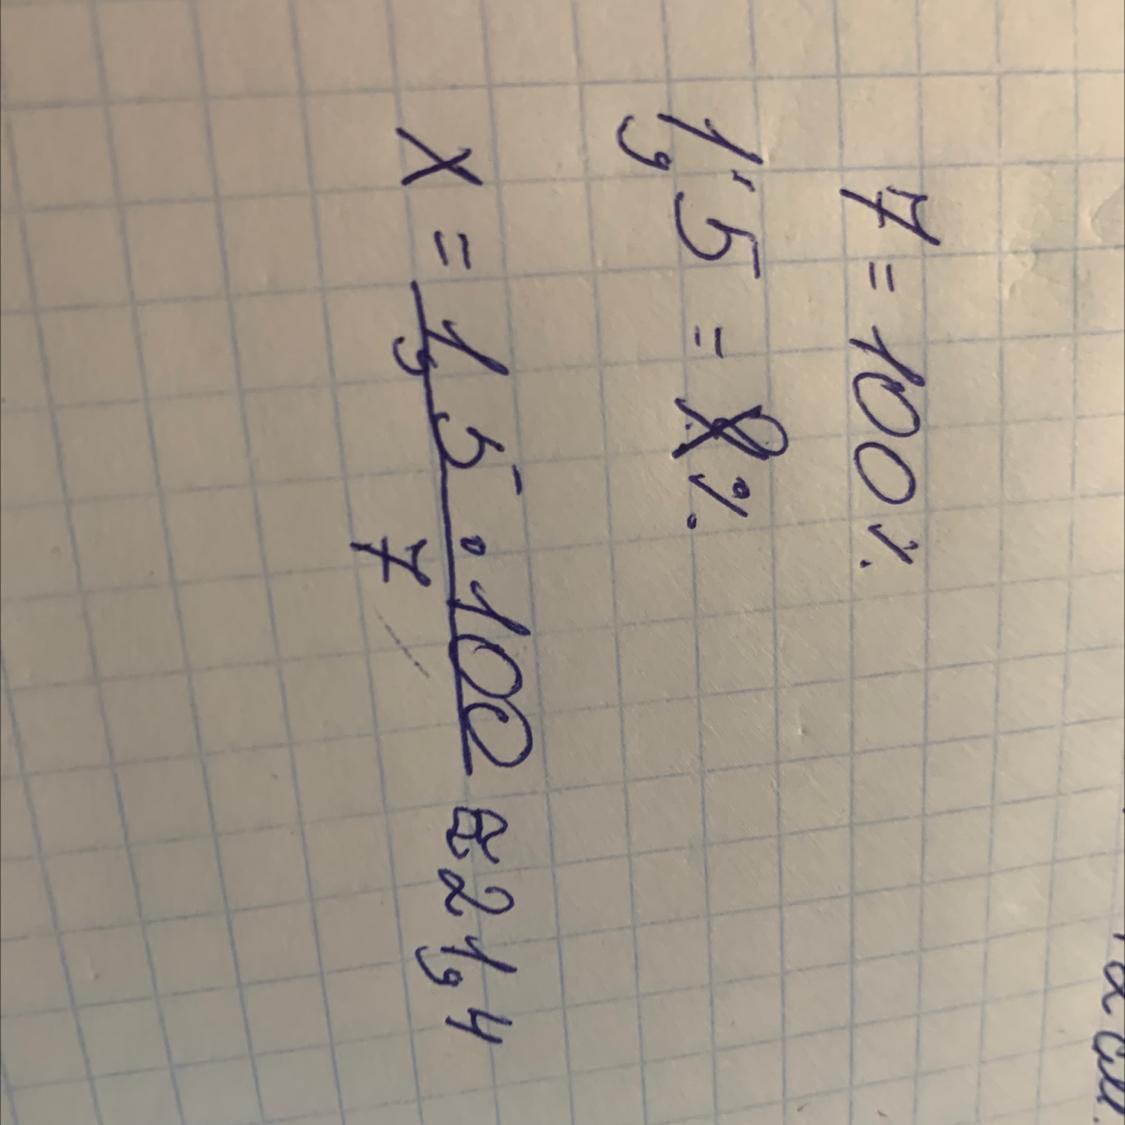 7 = 100%
1,5 = x%
x = 1,5 · 100 / 7 ≈ 21,4